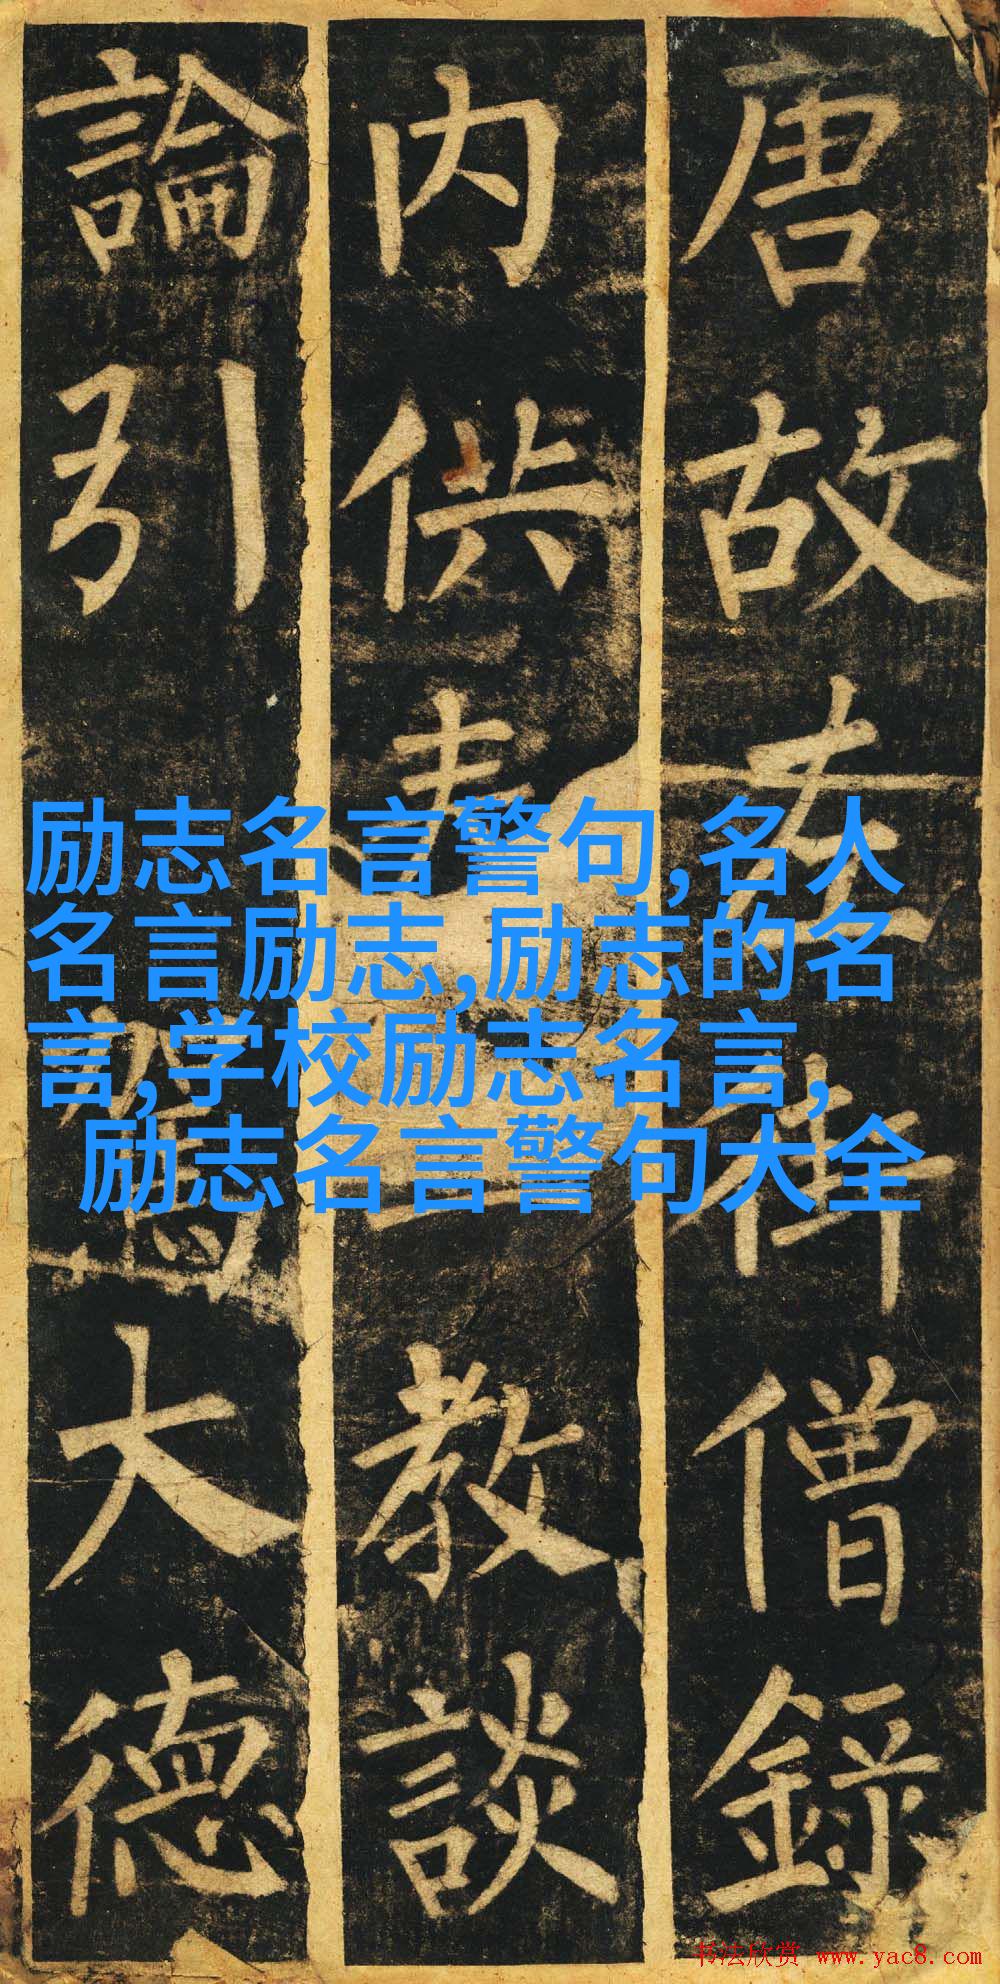 唐故左街僧録
内供教談
論引駕大德
励志名言警句,名人
名言励志,励志的名
言,学校励志名言,
励志名言警句大全
书法欣赏 www.yac8.com